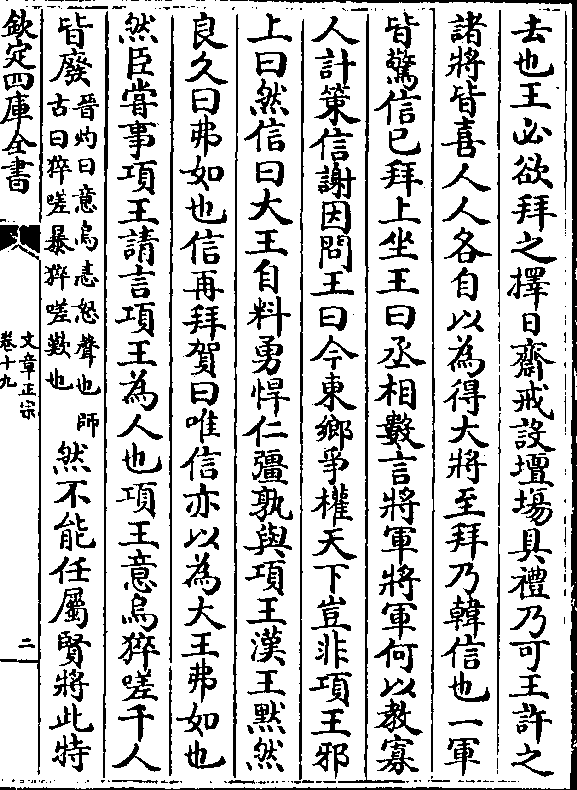 去也王必欲拜之擇日齋戒設壇場具禮乃可王許之
諸將皆喜人人各自以為得大將至拜乃韓信也一軍
皆驚信已拜上坐王曰丞相數言將軍將軍何以教寡
人計策信謝因問王曰今東鄉爭權天下豈非項王邪
上曰然信曰大王自料勇悍仁彊孰與項王漢王黙然
良久曰弗如也信再拜賀曰唯信亦以為大王弗如也
然臣嘗事項王請言項王為人也項王意烏猝嗟千人
皆廢晉灼曰意烏恚怒聲也師古曰猝嗟暴猝嗟歎也然不能任屬賢將此特
欽定四庫全書
文章正宗
卷十九
二